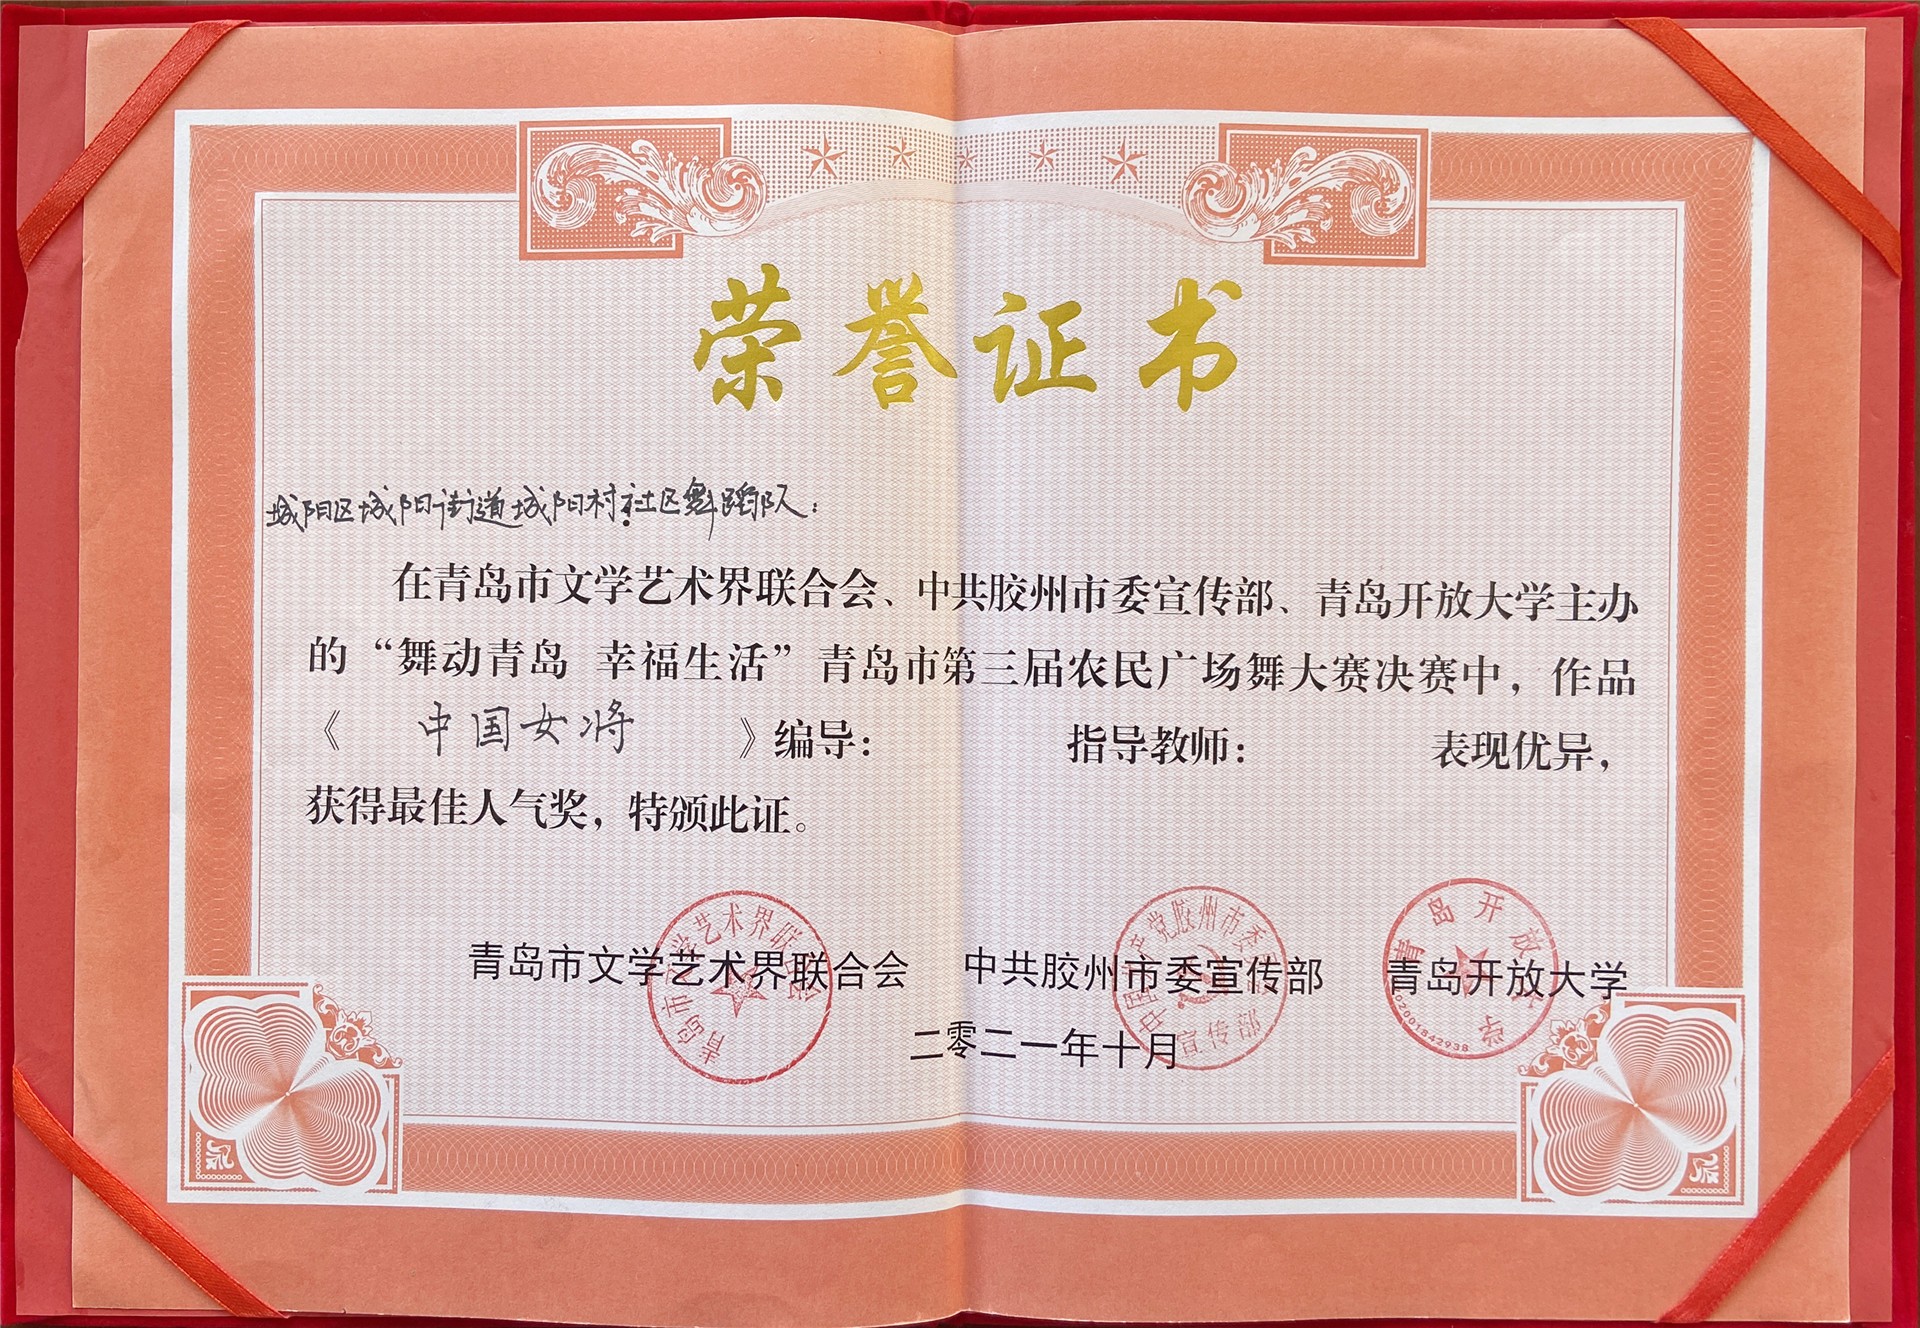 荣誉证书
城阳区城阳街道城阳村社区舞蹈队：
在青岛市文学艺术界联合会、中共胶州市委宣传部、青岛开放大学主办
的“舞动青岛 幸福生活”青岛市第三届农民广场舞大赛决赛中，作品
《 中国女将 》编导： 指导教师： 表现优异，
获得最佳人气奖，特颁此证。
青岛市文学艺术界联合会 中共胶州市委宣传部 青岛开放大学
二零二一年十月
青岛市文学艺术界联合会
中国共产党胶州市委员会
宣传部
青岛开放大学